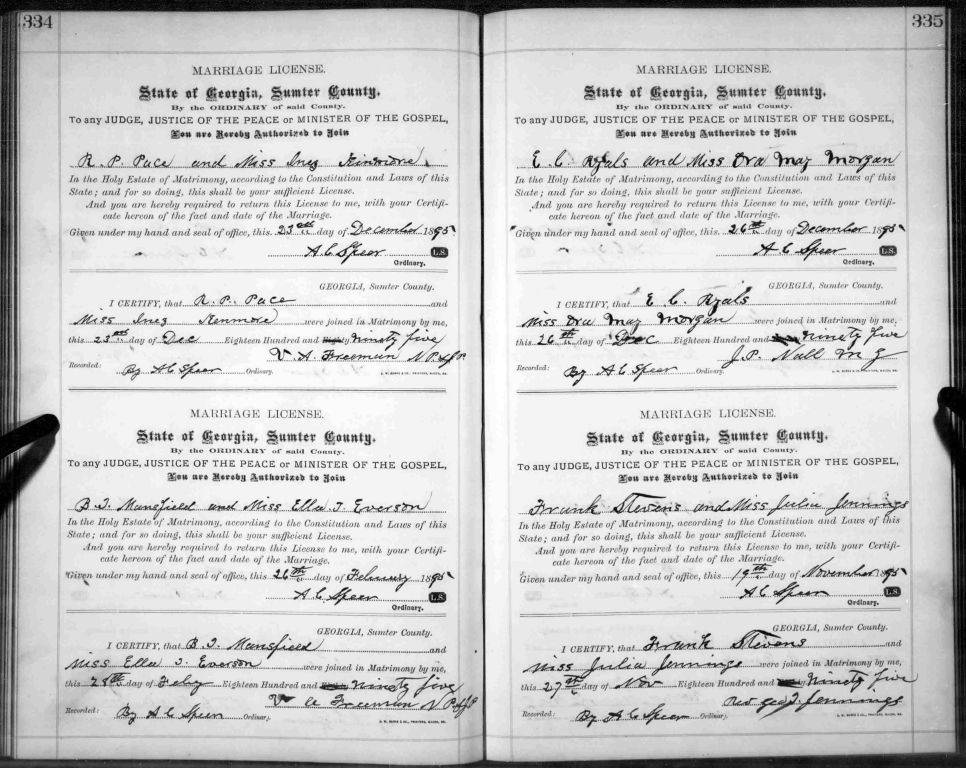 334
MARRIAGE LICENSE.
State of Georgia, Sumter County.
By the ORDINARY of said County.
To any JUDGE, JUSTICE OF THE PEACE or MINISTER OF THE GOSPEL,
You are Hereby Authorized to Join
R. P. Pace and Miss Inez Kinmore
In the Holy Estate of Matrimony, according to the Constitution and Laws of this
State; and for so doing, this shall be your sufficient License.
And you are hereby required to return this License to me, with your Certifi-
cate hereon of the fact and date of the Marriage.
Given under my hand and seal of office, this 23rd day of December 1895
A C Speer L.S.
Ordinary.
GEORGIA, Sumter County.
I CERTIFY, that R. P. Pace and
Miss Inez Kenmore were joined in Matrimony by me,
this 23rd day of Dec Eighteen Hundred and Ninety five
V. A. Freeman N P & J P.
Recorded: By A C Speer Ordinary.
MARRIAGE LICENSE.
State of Georgia, Sumter County.
By the ORDINARY of said County.
To any JUDGE, JUSTICE OF THE PEACE or MINISTER OF THE GOSPEL,
You are Hereby Authorized to Join
B. T. Mansfield and Miss Ella T. Everson
In the Holy Estate of Matrimony, according to the Constitution and Laws of this
State; and for so doing, this shall be your sufficient License.
And you are hereby required to return this License to me, with your Certifi-
cate hereon of the fact and date of the Marriage.
Given under my hand and seal of office, this 26th day of February 1895
A C Speer L.S.
Ordinary.
GEORGIA, Sumter County.
I CERTIFY, that B. T. Mansfield and
Miss Ella T. Everson were joined in Matrimony by me,
this 28th day of Feby Eighteen Hundred and ninety five
V a Freeman N P & J P
Recorded: By A C Speer Ordinary.
335
MARRIAGE LICENSE.
State of Georgia, Sumter County.
By the ORDINARY of said County.
To any JUDGE, JUSTICE OF THE PEACE or MINISTER OF THE GOSPEL,
You are Hereby Authorized to Join
E. C. Ryals and Miss Ora May Morgan
In the Holy Estate of Matrimony, according to the Constitution and Laws of this
State; and for so doing, this shall be your sufficient License.
And you are hereby required to return this License to me, with your Certifi-
cate hereon of the fact and date of the Marriage.
Given under my hand and seal of office, this 26th day of December 1895
A C Speer L.S.
Ordinary.
GEORGIA, Sumter County.
I CERTIFY, that E. C. Ryals and
Miss Ora May Morgan were joined in Matrimony by me,
this 26th day of Dec Eighteen Hundred and Ninety five
J. P. Nall M G
Recorded: By A C Speer Ordinary.
MARRIAGE LICENSE.
State of Georgia, Sumter County.
By the ORDINARY of said County.
To any JUDGE, JUSTICE OF THE PEACE or MINISTER OF THE GOSPEL,
You are Hereby Authorized to Join
Frank Stevens and Miss Julia Jennings
In the Holy Estate of Matrimony, according to the Constitution and Laws of this
State; and for so doing, this shall be your sufficient License.
And you are hereby required to return this License to me, with your Certifi-
cate hereon of the fact and date of the Marriage.
Given under my hand and seal of office, this 19th day of November 1895
A C Speer L.S.
Ordinary.
GEORGIA, Sumter County.
I CERTIFY, that Frank Stevens and
Miss Julia Jennings were joined in Matrimony by me,
this 27th day of Nov Eighteen Hundred and Ninety five
Rev Geo T. Jennings
Recorded: By A C Speer Ordinary.